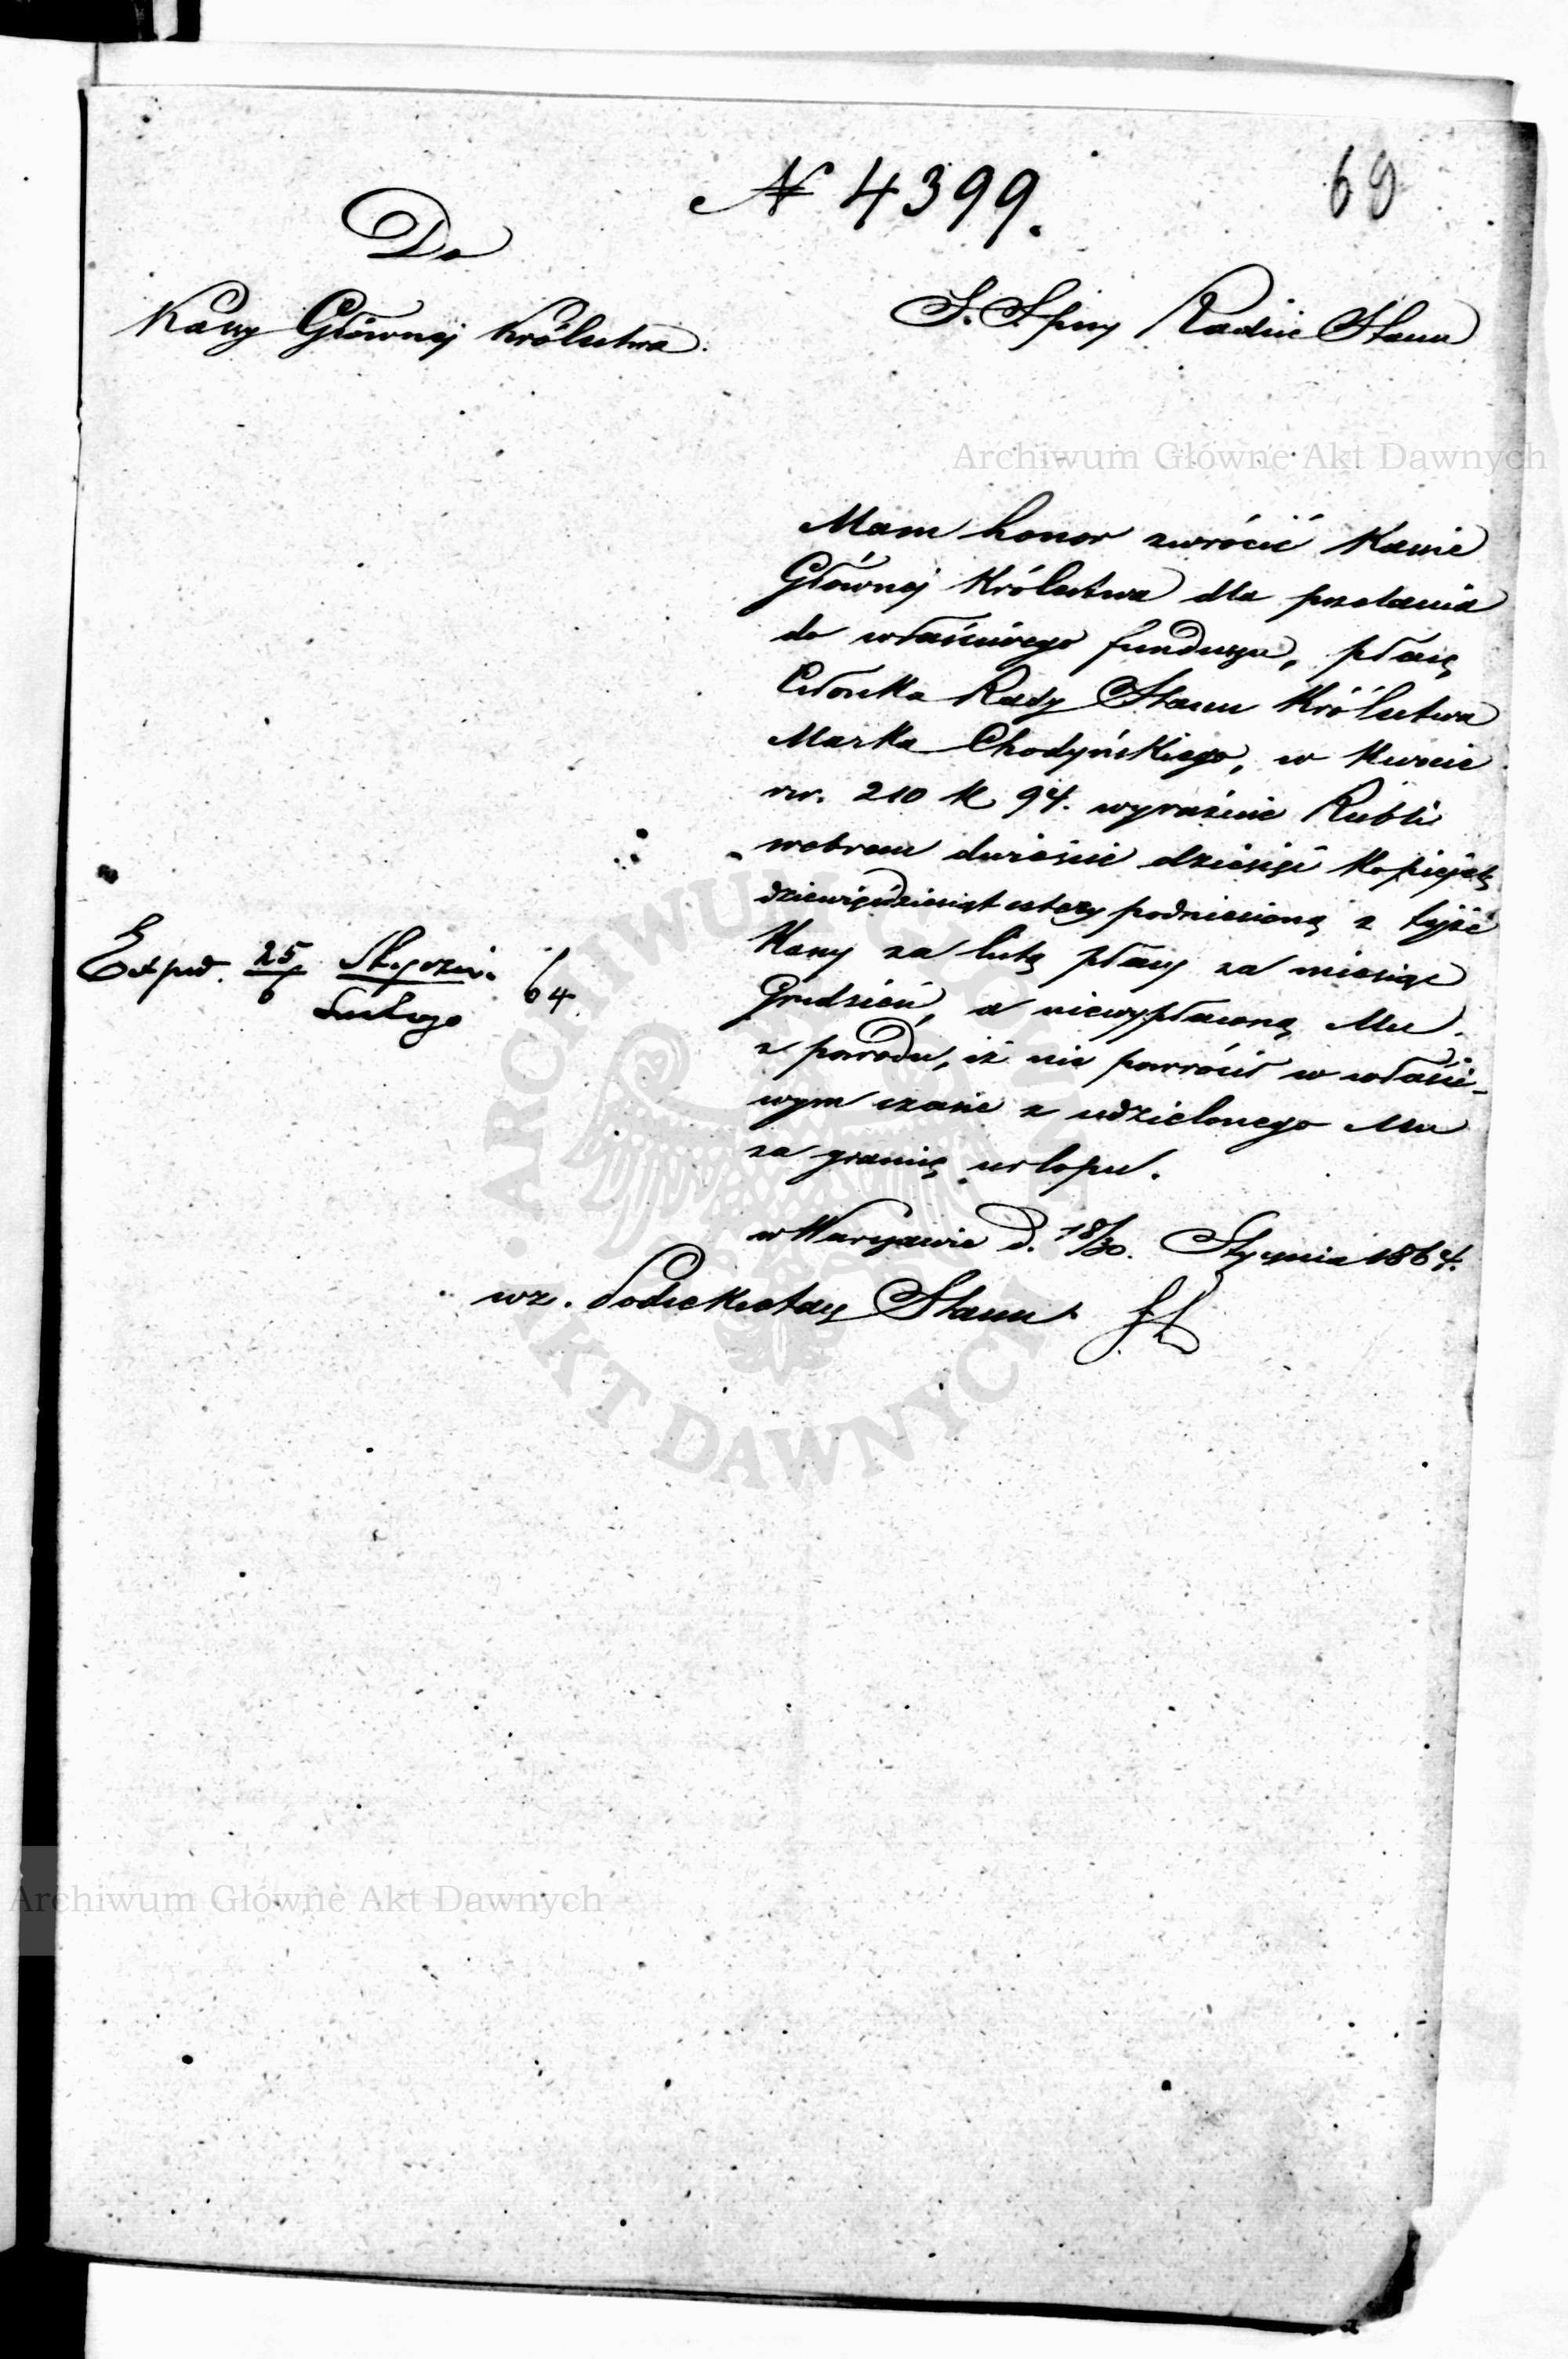 N 4399.
69
Do
Kassy Głównej Królestwa.
Radzie Stanu
Archiwum Główne Akt Dawnych
Mam honor zwrócić Kassie
Głównej Królestwa dla przelania
do właściwego funduszu, płacę
Członka Rady Stanu Królestwa
Marka Chodyńskiego, w kwocie
rsr. 210 k 94. wyraźnie Rubli
srebrem dwieście dziesięć kopiejek
dziewięćdziesiąt cztery podniesioną z tejże
Kassy za listą płacy za miesiąc
Grudzień, a niewypłaconą Mu
z powodu, iż nie powrócił w właści-
wym czasie z udzielonego Mu
za granicę urlopu.
w Warszawie d. 18/30. Stycznia 1864.
wz. Podsekretarz Stanu
Exped. 25/6 Stycznia/Lutego 64
ARCHIWUM GŁÓWNE AKT DAWNYCH
Archiwum Główne Akt Dawnych